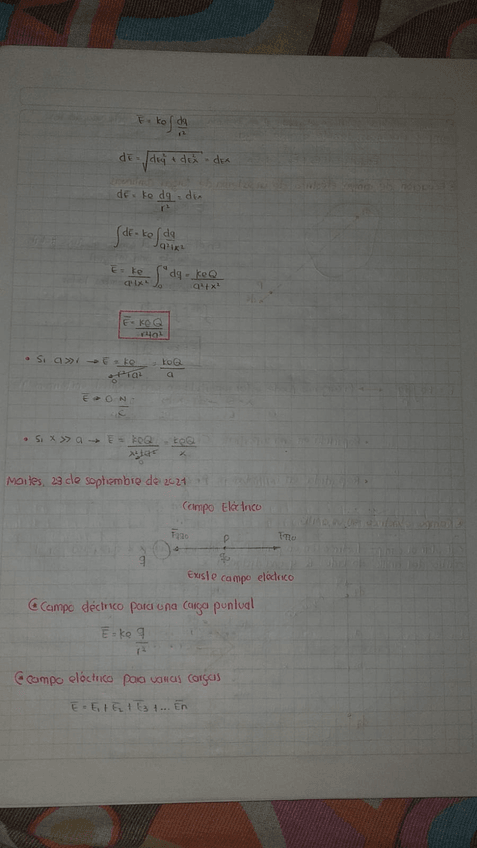 E = ke ∫ dq/r²
dE = √(dEy² + dEx²) = dEx
dE = ke dq/r² = dEx
∫dE = ke ∫ dq/a²+x²
E = ke/a²+x² ∫₀ᵠ dq = keQ/a²+x²
E = keQ/
• Si a>>r → E = = keQ/a
E → 0 N/C
• Si x >> a → E = keQ/x²+a² = keQ/x
Martes, 23 de septiembre de 2021
Campo Eléctrico
P
q
Existe campo eléctrico
Campo eléctrico para una carga puntual
E = ke q/r²
campo eléctrico para varias cargas
E = E₁ + E₂ + E₃ + ... En